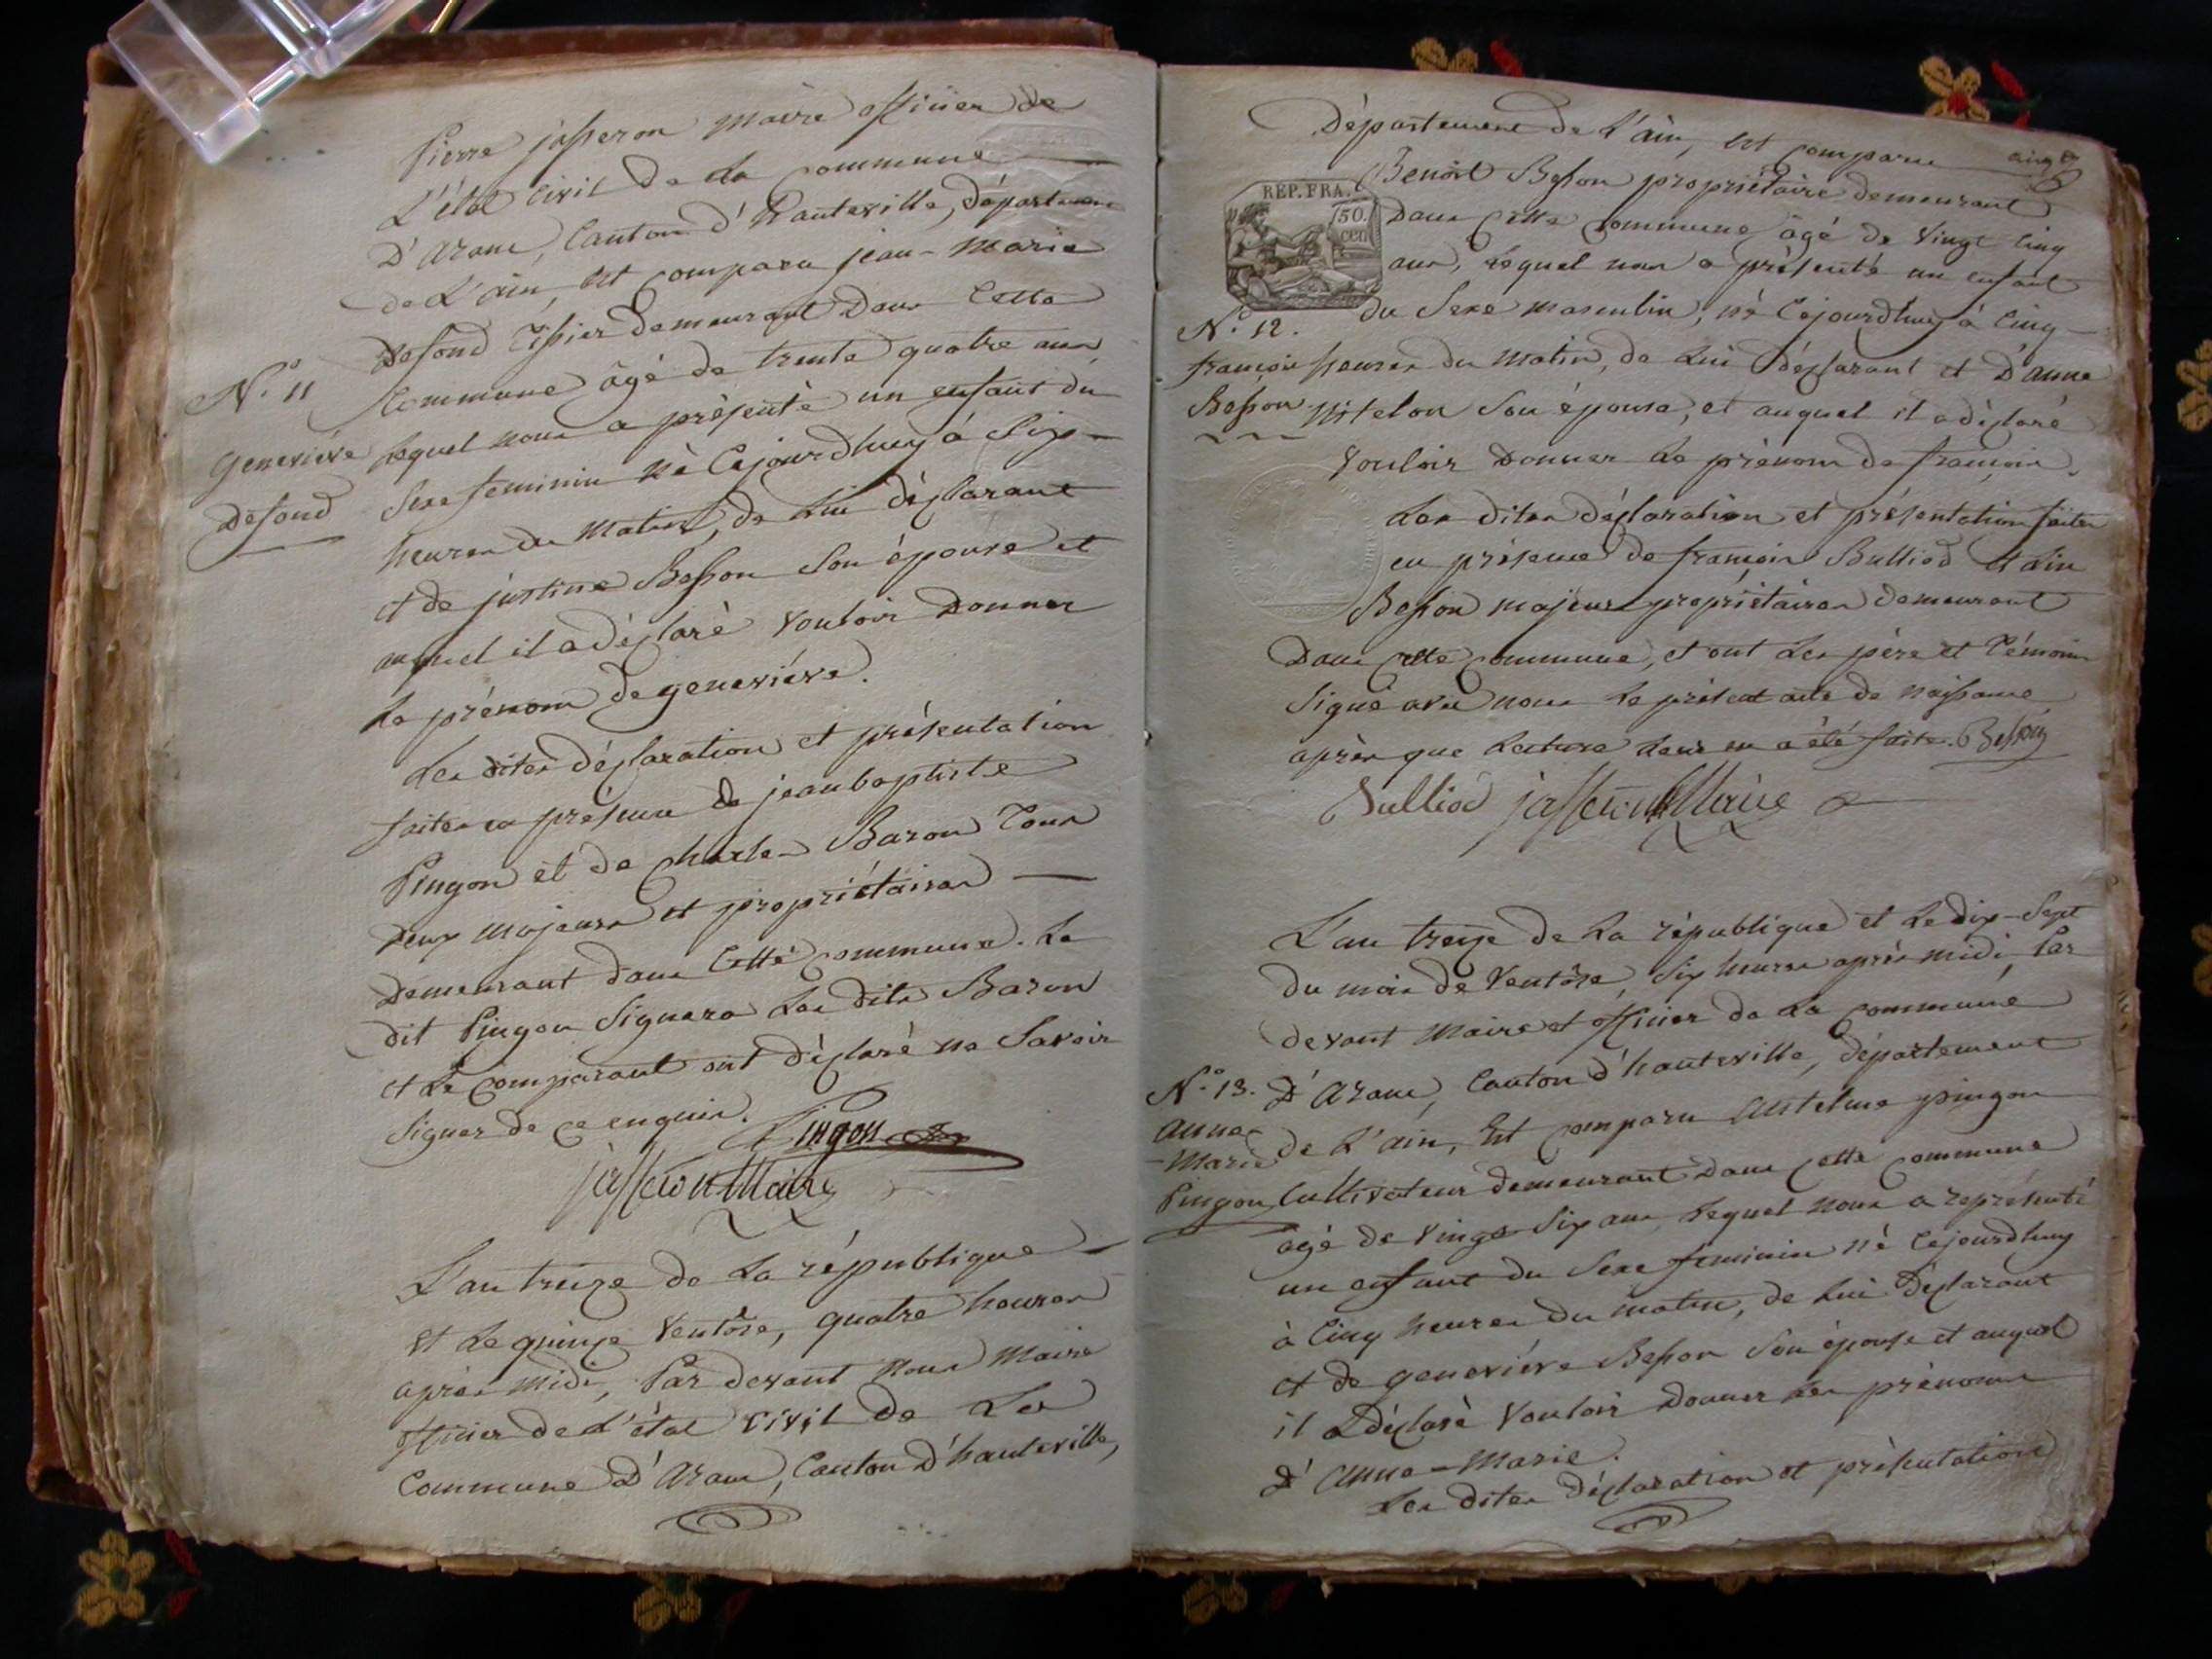 Pierre josseron Maire officier de
L'état Civil de la commune
D'aranc, Canton d'hauteville, département
de L'ain, Est comparu jean-marie
Defond Tissier demeurant Dans Cette
N.º 11 Commune âgé de trente quatre ans,
Geneviéve Lequel nous a présenté un enfant du
Defond Sexe feminin né Cejourdhuy à Six
heures du matin, de Lui déclarant
et de justine Besson Son épouse et
auquel il a déclaré vouloir Donner
Le prénom de geneviéve.
Les dites déclaration et présentation
faites en présence de jean baptiste
Pingon et de charles Baron Tous
Deux majeurs et propriétaires
Demeurant dans Cette commune. Le
dit Pingon Signera Les dits Baron
et Le comparant ont déclaré ne Savoir
Signer de ce enquis.
Pingon
josseron Maire
L'an treize de La république
Et Le quinze Ventôse, quatre heures
après midi, Par devant Nous Maire
officier de L'état civil de La
Commune D'aranc, Canton d'hauteville,
Département de L'ain, Est comparu
REP. FRA.
50. cen
Benoit Besson propriétaire demeurant
Dans Cette commune âgé de vingt Cinq
ans, Lequel nous a présenté un enfant
du Sexe masculin, né Cejourdhuy à Cinq
N.º 12.
françois heures du matin, de Lui déclarant et D'anne
Besson Vitelon Son épouse, et auquel il a déclaré
Vouloir Donner Le prénom de françois.
Les dites déclaration et présentation faites
en présence de françois Bulliod et
Besson majeurs propriétaires demeurant
Dans cette commune, et ont Les père et Témoins
Signé avec nous Le présent acte de naissance
après que Lecture Leur en a été faite. Besson
Bulliod josseron Maire
L'an treize de La république et Le dix-Sept
du mois de Ventôse, Six heures après midi, Par
devant Maire et officier de La commune
N.º 13. D'aranc, Canton d'hauteville, département
anne
-Marie de L'ain, Est comparu Anthelme pingon
Pingon Cultivateur demeurant dans cette commune
agé de vingt Six ans, Lequel nous a représenté
un enfant du Sexe feminin né Cejourdhuy
à Cinq heures du matin, de Lui déclarant
et de geneviéve Besson Son épouse et auquel
il a déclaré Vouloir Donner Les prénoms
D'anne-Marie.
Les dites déclaration et présentation